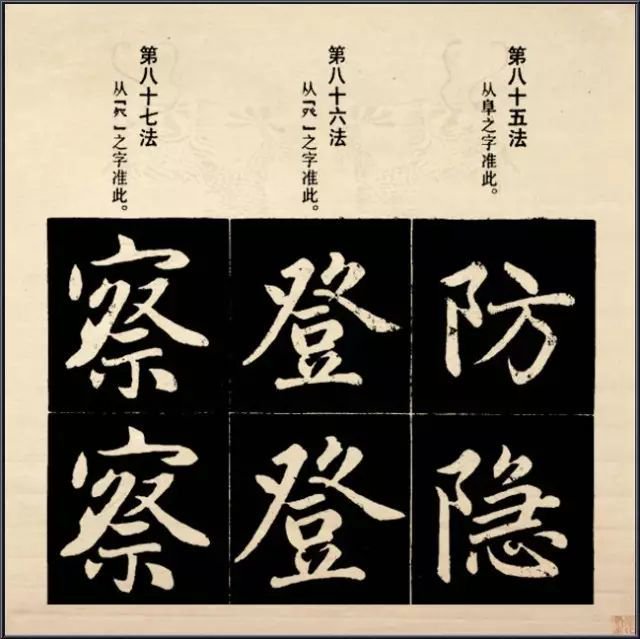 第八十五法
从阜之字准此。
第八十六法
从「癶」之字准此。
第八十七法
之字准此。
防
隐
登
登
察
察